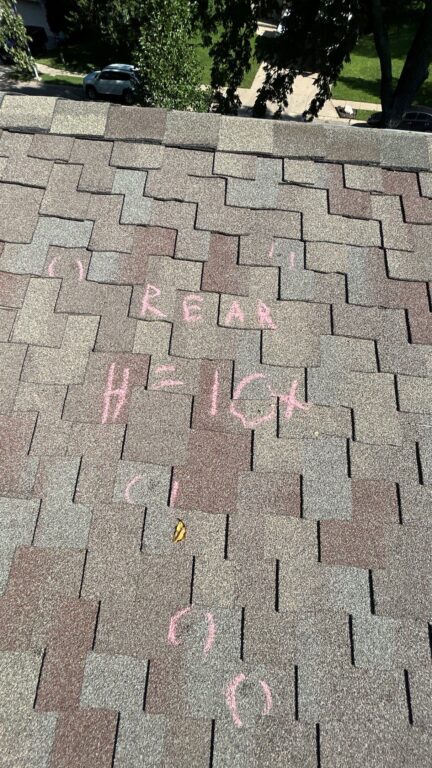 REAR
H = 10+